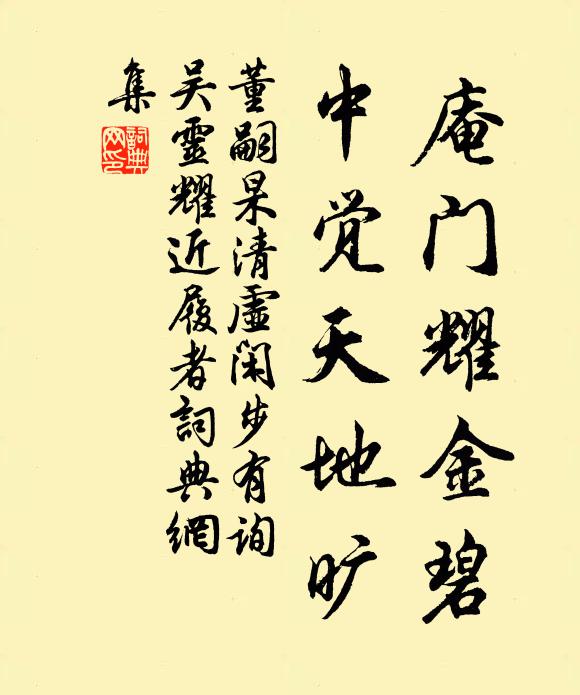 庵门耀金碧
中觉天地旷
董嗣杲清虚闲步有询
吴灵耀近履者詞典網
集
詞典
网印